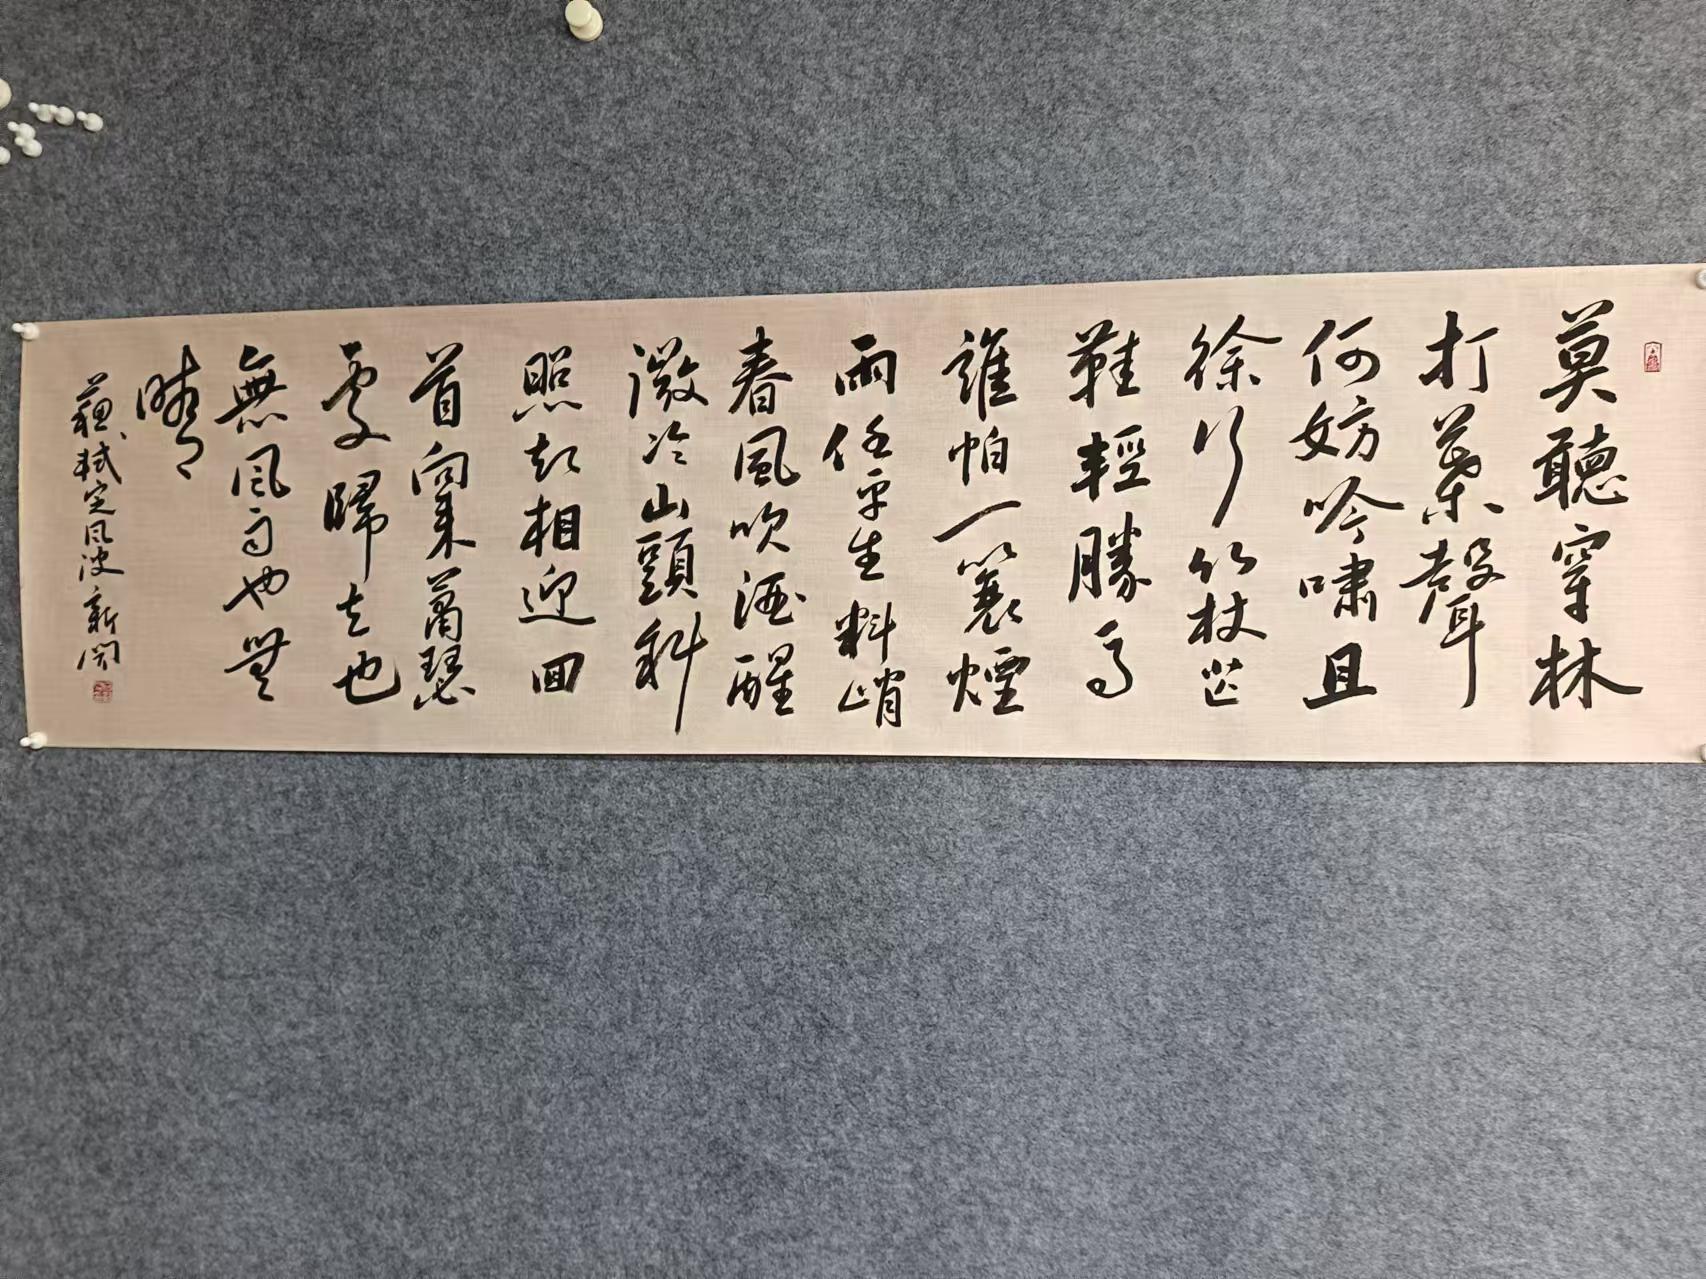 莫聽穿林
打葉聲
何妨吟嘯且
徐行竹杖芒
鞋輕勝馬
誰怕一蓑煙
雨任平生料峭
春風吹酒醒
微冷山頭斜
照却相迎回
首向來蕭瑟
處歸去也
無風雨也無
晴
蘇軾定風波 新閔